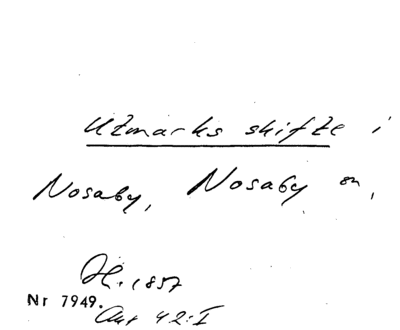 Utmarks skifte i
Nosaby, Nosaby sn,
H. 1857
Nr 7949.
Akt 42:I